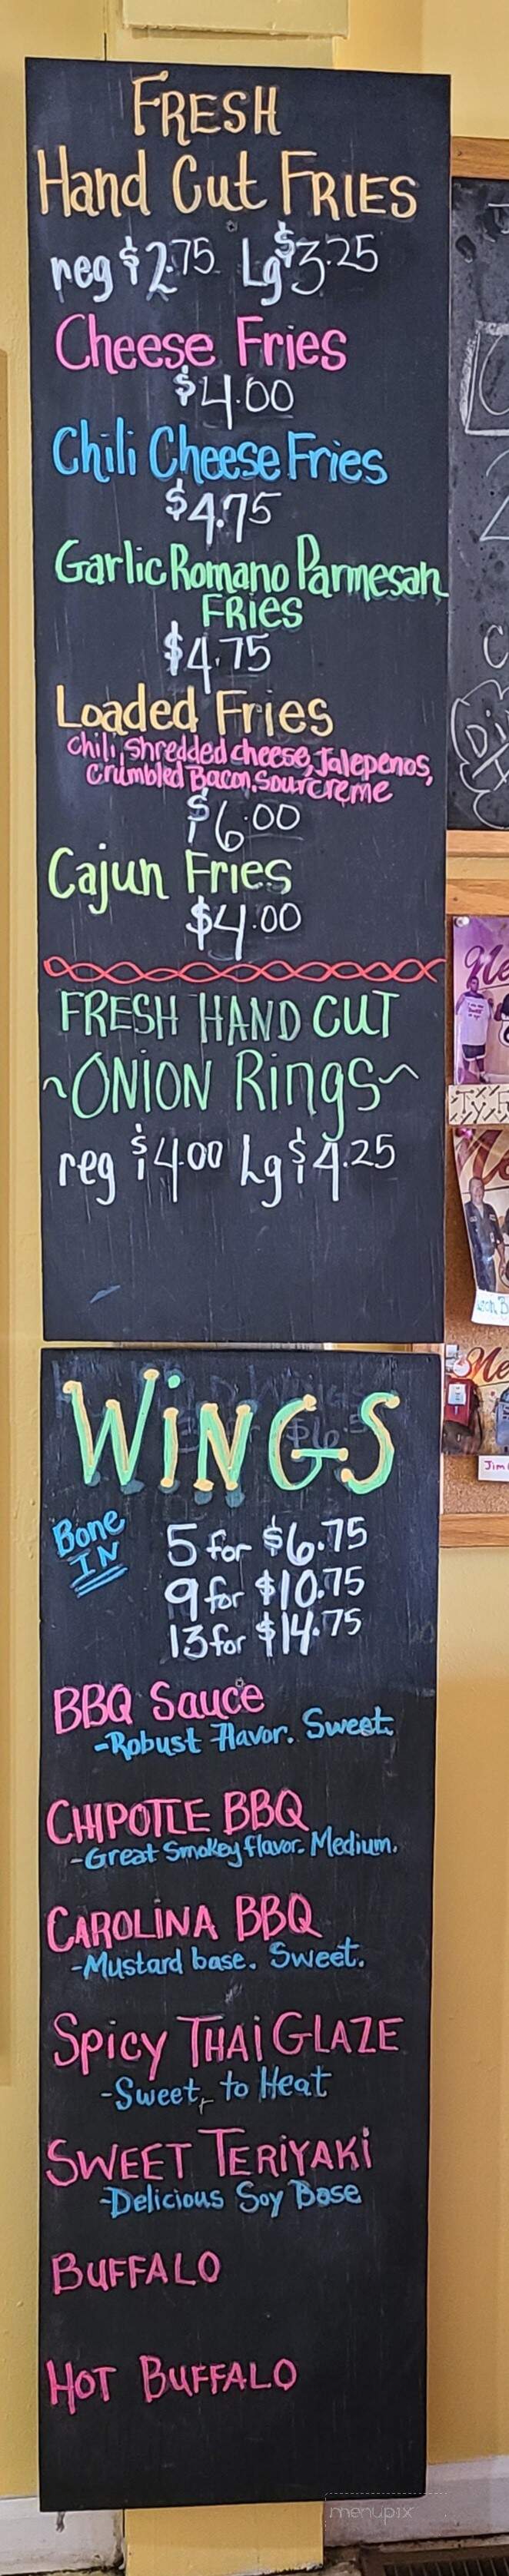 FRESH
Hand Cut FRIES
reg $2.75 Lg $3.25
Cheese Fries
$4.00
Chili Cheese Fries
$4.75
Garlic Romano Parmesan
FRIES
$4.75
Loaded Fries
Chili, Shredded cheese, Jalepenos,
Crumbled Bacon, Sour creme
$6.00
Cajun Fries
$4.00
FRESH HAND CUT
~ONION Rings~
reg $4.00 Lg $4.25
WiNGS
Bone
IN
5 for $6.75
9 for $10.75
13 for $14.75
BBQ Sauce
-Robust Flavor. Sweet.
CHIPOTLE BBQ
-Great Smokey flavor. Medium.
CAROLINA BBQ
-Mustard base. Sweet.
Spicy THAi GLAZE
-Sweet, to Heat
SWEET TERiYAKi
-Delicious Soy Base
BUFFALO
HOT BUFFALO
Jim
menupix